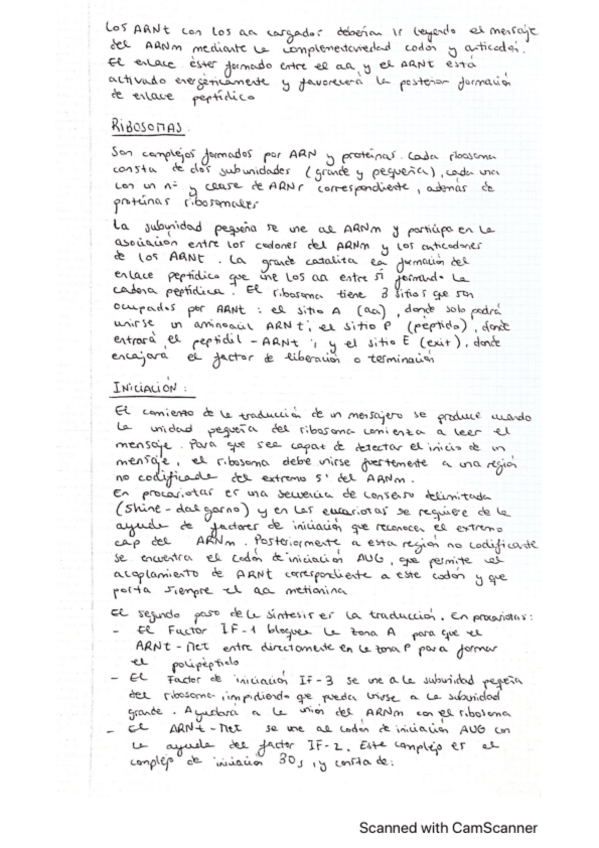 Los ARNt con los aa cargados deberían ir leyendo el mensaje
del ARNm mediante la complementariedad codón y anticodón.
El enlace éster formado entre el aa y el ARNt está
activado energéticamente y favorecerá la posterior formación
de enlace peptídico
RIBOSOMAS.
Son complejos formados por ARN y proteínas. Cada ribosoma
consta de dos subunidades (grande y pequeña), cada una
con un nº y clase de ARNr correspondiente, además de
proteínas ribosomales
La subunidad pequeña se une al ARNm y participa en la
asociación entre los codones del ARNm y los anticodones
de los ARNt. La grande cataliza la formación del
enlace peptídico que une los aa entre sí formando la
cadena peptídica. El ribosoma tiene 3 sitios que son
ocupados por ARNt: el sitio A (aa), donde solo podrá
unirse un aminoacil ARNt; el sitio P (péptido), donde
entrará el peptidil-ARNt; y el sitio E (exit), donde
encajará el factor de liberación o terminación
INICIACIÓN:
El comienzo de la traducción de un mensajero se produce cuando
la unidad pequeña del ribosoma comienza a leer el
mensaje. Para que sea capaz de detectar el inicio de un
mensaje, el ribosoma debe unirse fuertemente a una región
no codificada del extremo 5' del ARNm.
En procariotas es una secuencia de consenso delimitada
(Shine-dalgarno) y en las eucariotas se requiere de la
ayuda de factores de iniciación que reconocen el extremo
cap del ARNm. Posteriormente a esta región no codificante
se encuentra el codón de iniciación AUG, que permite el
acoplamiento de ARNt correspondiente a este codón y que
porta siempre el aa metionina
El segundo paso de la síntesis es la traducción. En procariotas:
- El Factor IF-1 bloquea la zona A para que el
ARNt-Met entre directamente en la zona P para formar
el polipéptido
- El Factor de iniciación IF-3 se une a la subunidad pequeña
del ribosoma impidiendo que pueda unirse a la subunidad
grande. Ayudará a la unión del ARNm con el ribosoma
- El ARNt-Met se une al codón de iniciación AUG con
la ayuda del factor IF-2. Este complejo es el
complejo de iniciación 30s, y consta de:
Scanned with CamScanner